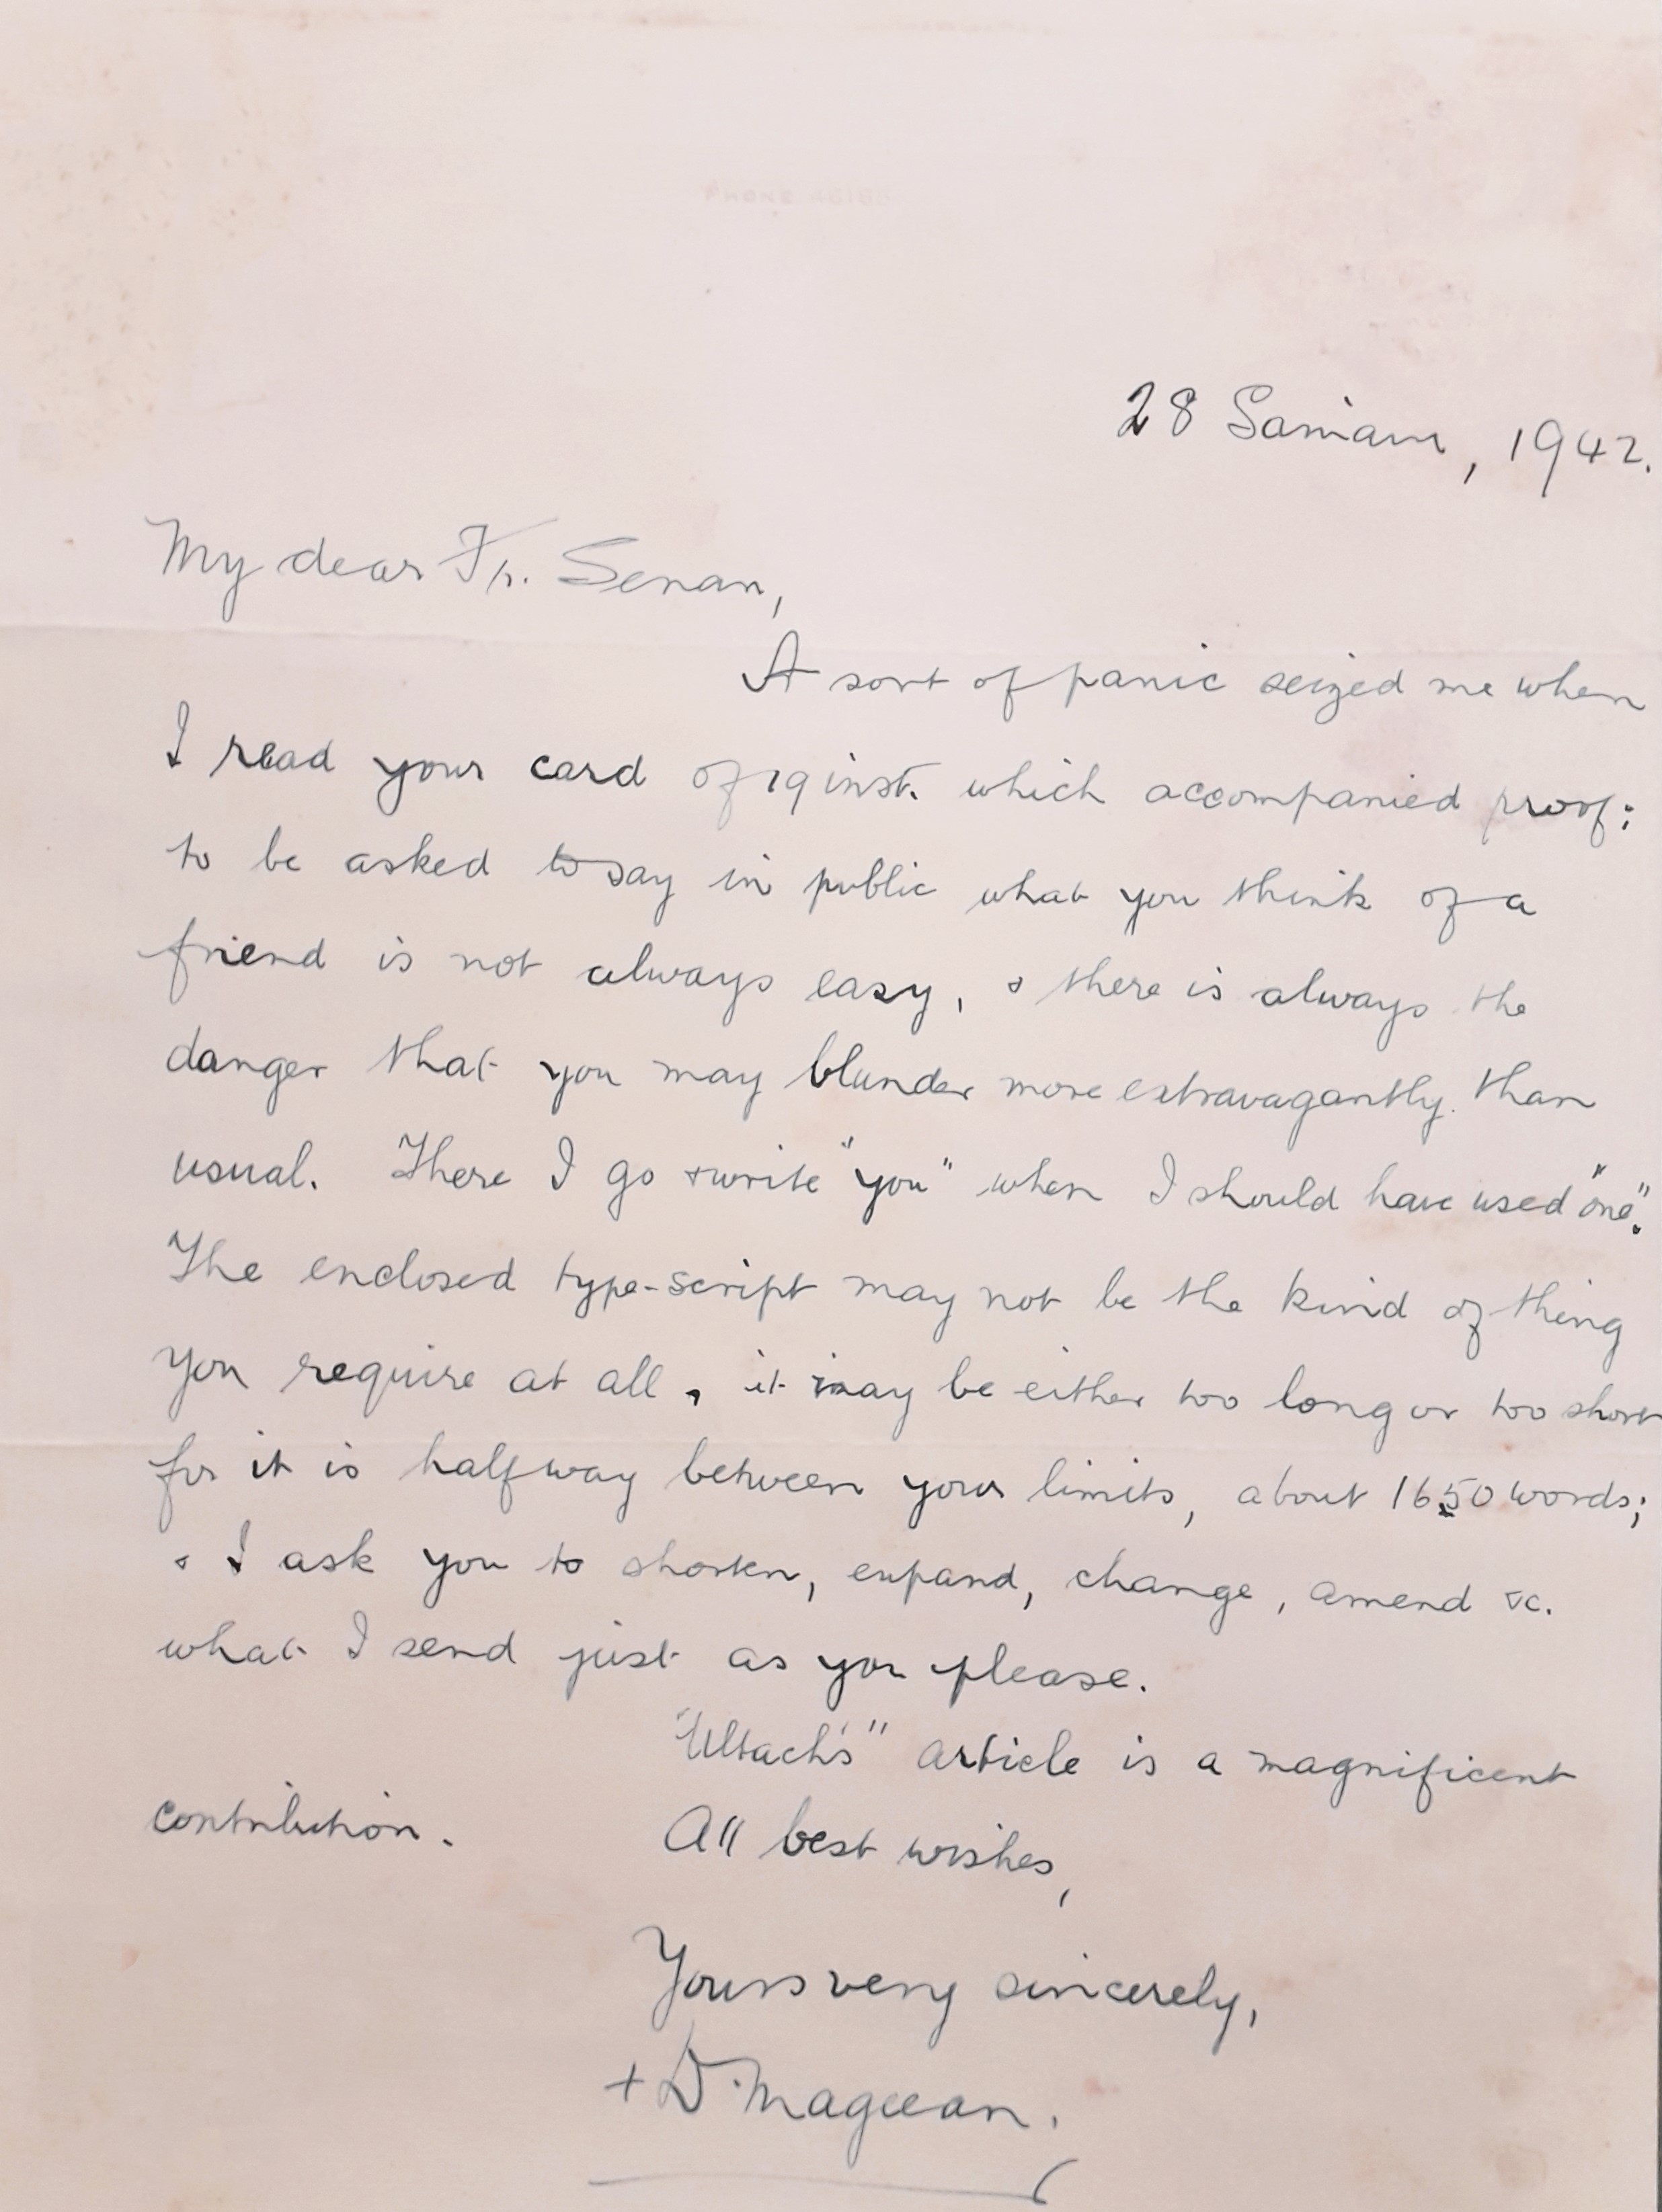 28 Samain, 1942.
My dear Fr. Senan,
A sort of panic seized me when
I read your card of 19 inst. which accompanied proof;
to be asked to say in public what you think of a
friend is not always easy, & there is always the
danger that you may blunder more extravagantly than
usual. There I go & write "you" when I should have used "one".
The enclosed type-script may not be the kind of thing
you require at all, it may be either too long or too short
for it is halfway between your limits, about 1650 words;
& I ask you to shorten, expand, change, amend &c.
what I send just as you please.
"Ultach's" article is a magnificent
contribution.
All best wishes,
Yours very sincerely,
+ D. Mageean.